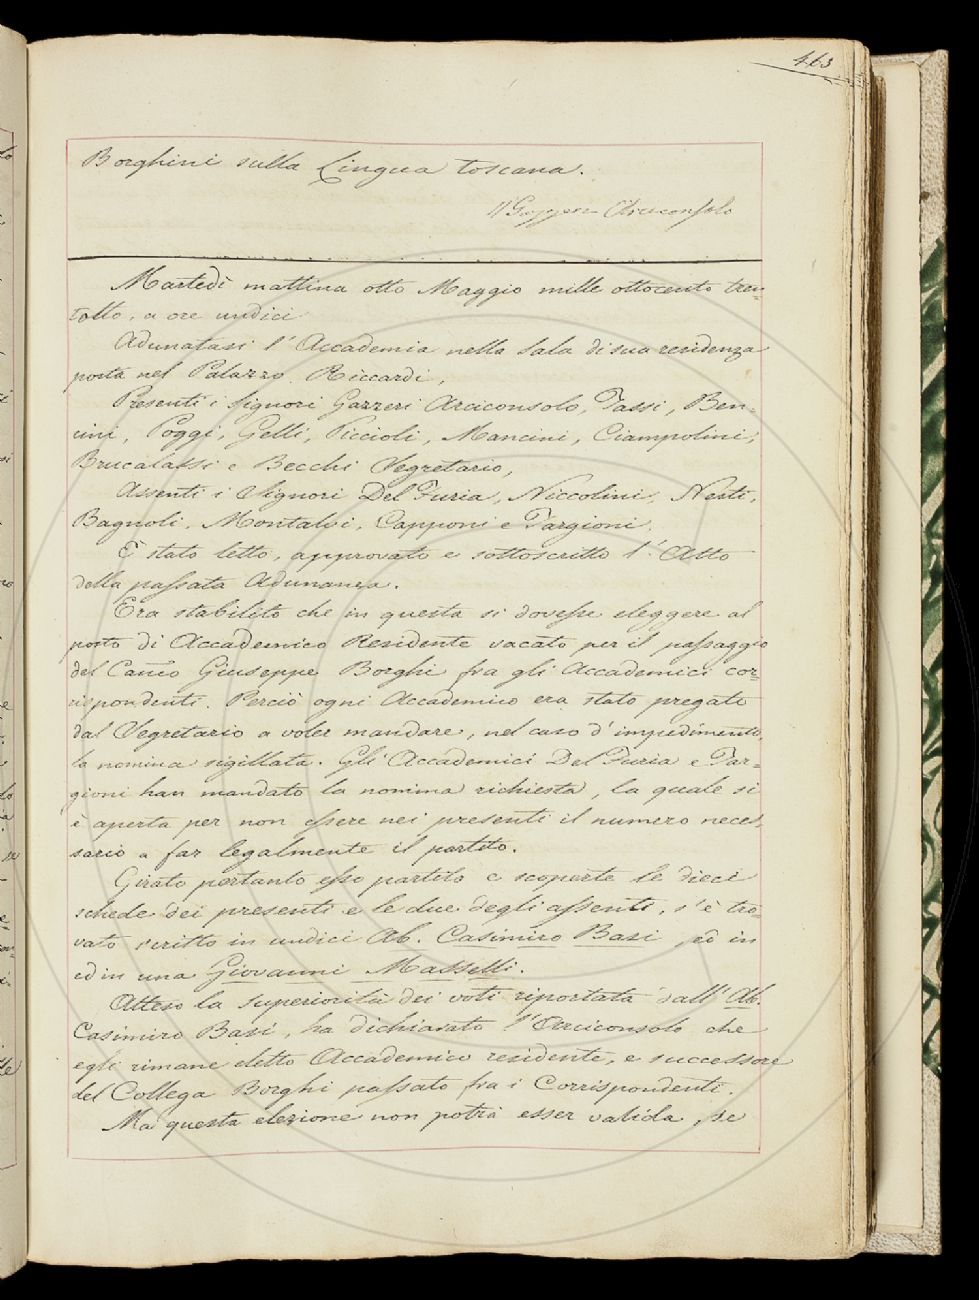 463
Borghini sulla Lingua toscana.
Il Gazzeri Arciconsolo
Martedì mattina otto Maggio mille ottocento tren-
totto, a ore undici
Adunatasi l'Accademia nella Sala di sua residenza
posta nel Palazzo Riccardi,
Presenti i Signori Gazzeri Arciconsolo, Tassi, Ben-
cini, Poggi, Gelli, Piccioli, Mancini, Ciampolini,
Brucalassi e Becchi Segretario,
Assenti i Signori Del Furia, Niccolini, Nesti,
Bagnoli, Montalvi, Capponi e Targioni.
È stato letto, approvato e sottoscritto l'Atto
della passata Adunanza.
Era stabilito che in questa si dovesse eleggere al
posto di Accademico Residente vacato per il passaggio
del Canco Giuseppe Borghi fra gli Accademici cor-
rispondenti. Perciò ogni Accademico era stato pregato
dal Segretario a voler mandare, nel caso d'impedimento,
la nomina sigillata. Gli Accademici Del Furia e Tar-
gioni han mandato la nomina richiesta, la quale si
è aperta per non essere nei presenti il numero neces-
sario a far legalmente il partito.
Girato pertanto esso partito e scoperte le dieci
schede dei presenti e le due degli assenti, s'è tro-
vato scritto in undici Ab. Casimiro Basi, ed in
ed in una Giovanni Masselli.
Atteso la superiorità dei voti riportata dall'Ab.
Casimiro Basi, ha dichiarato l'Arciconsolo che
egli rimane eletto Accademico residente, e successore
del Collega Borghi passato fra i Corrispondenti.
Ma questa elezione non potrà esser valida, se